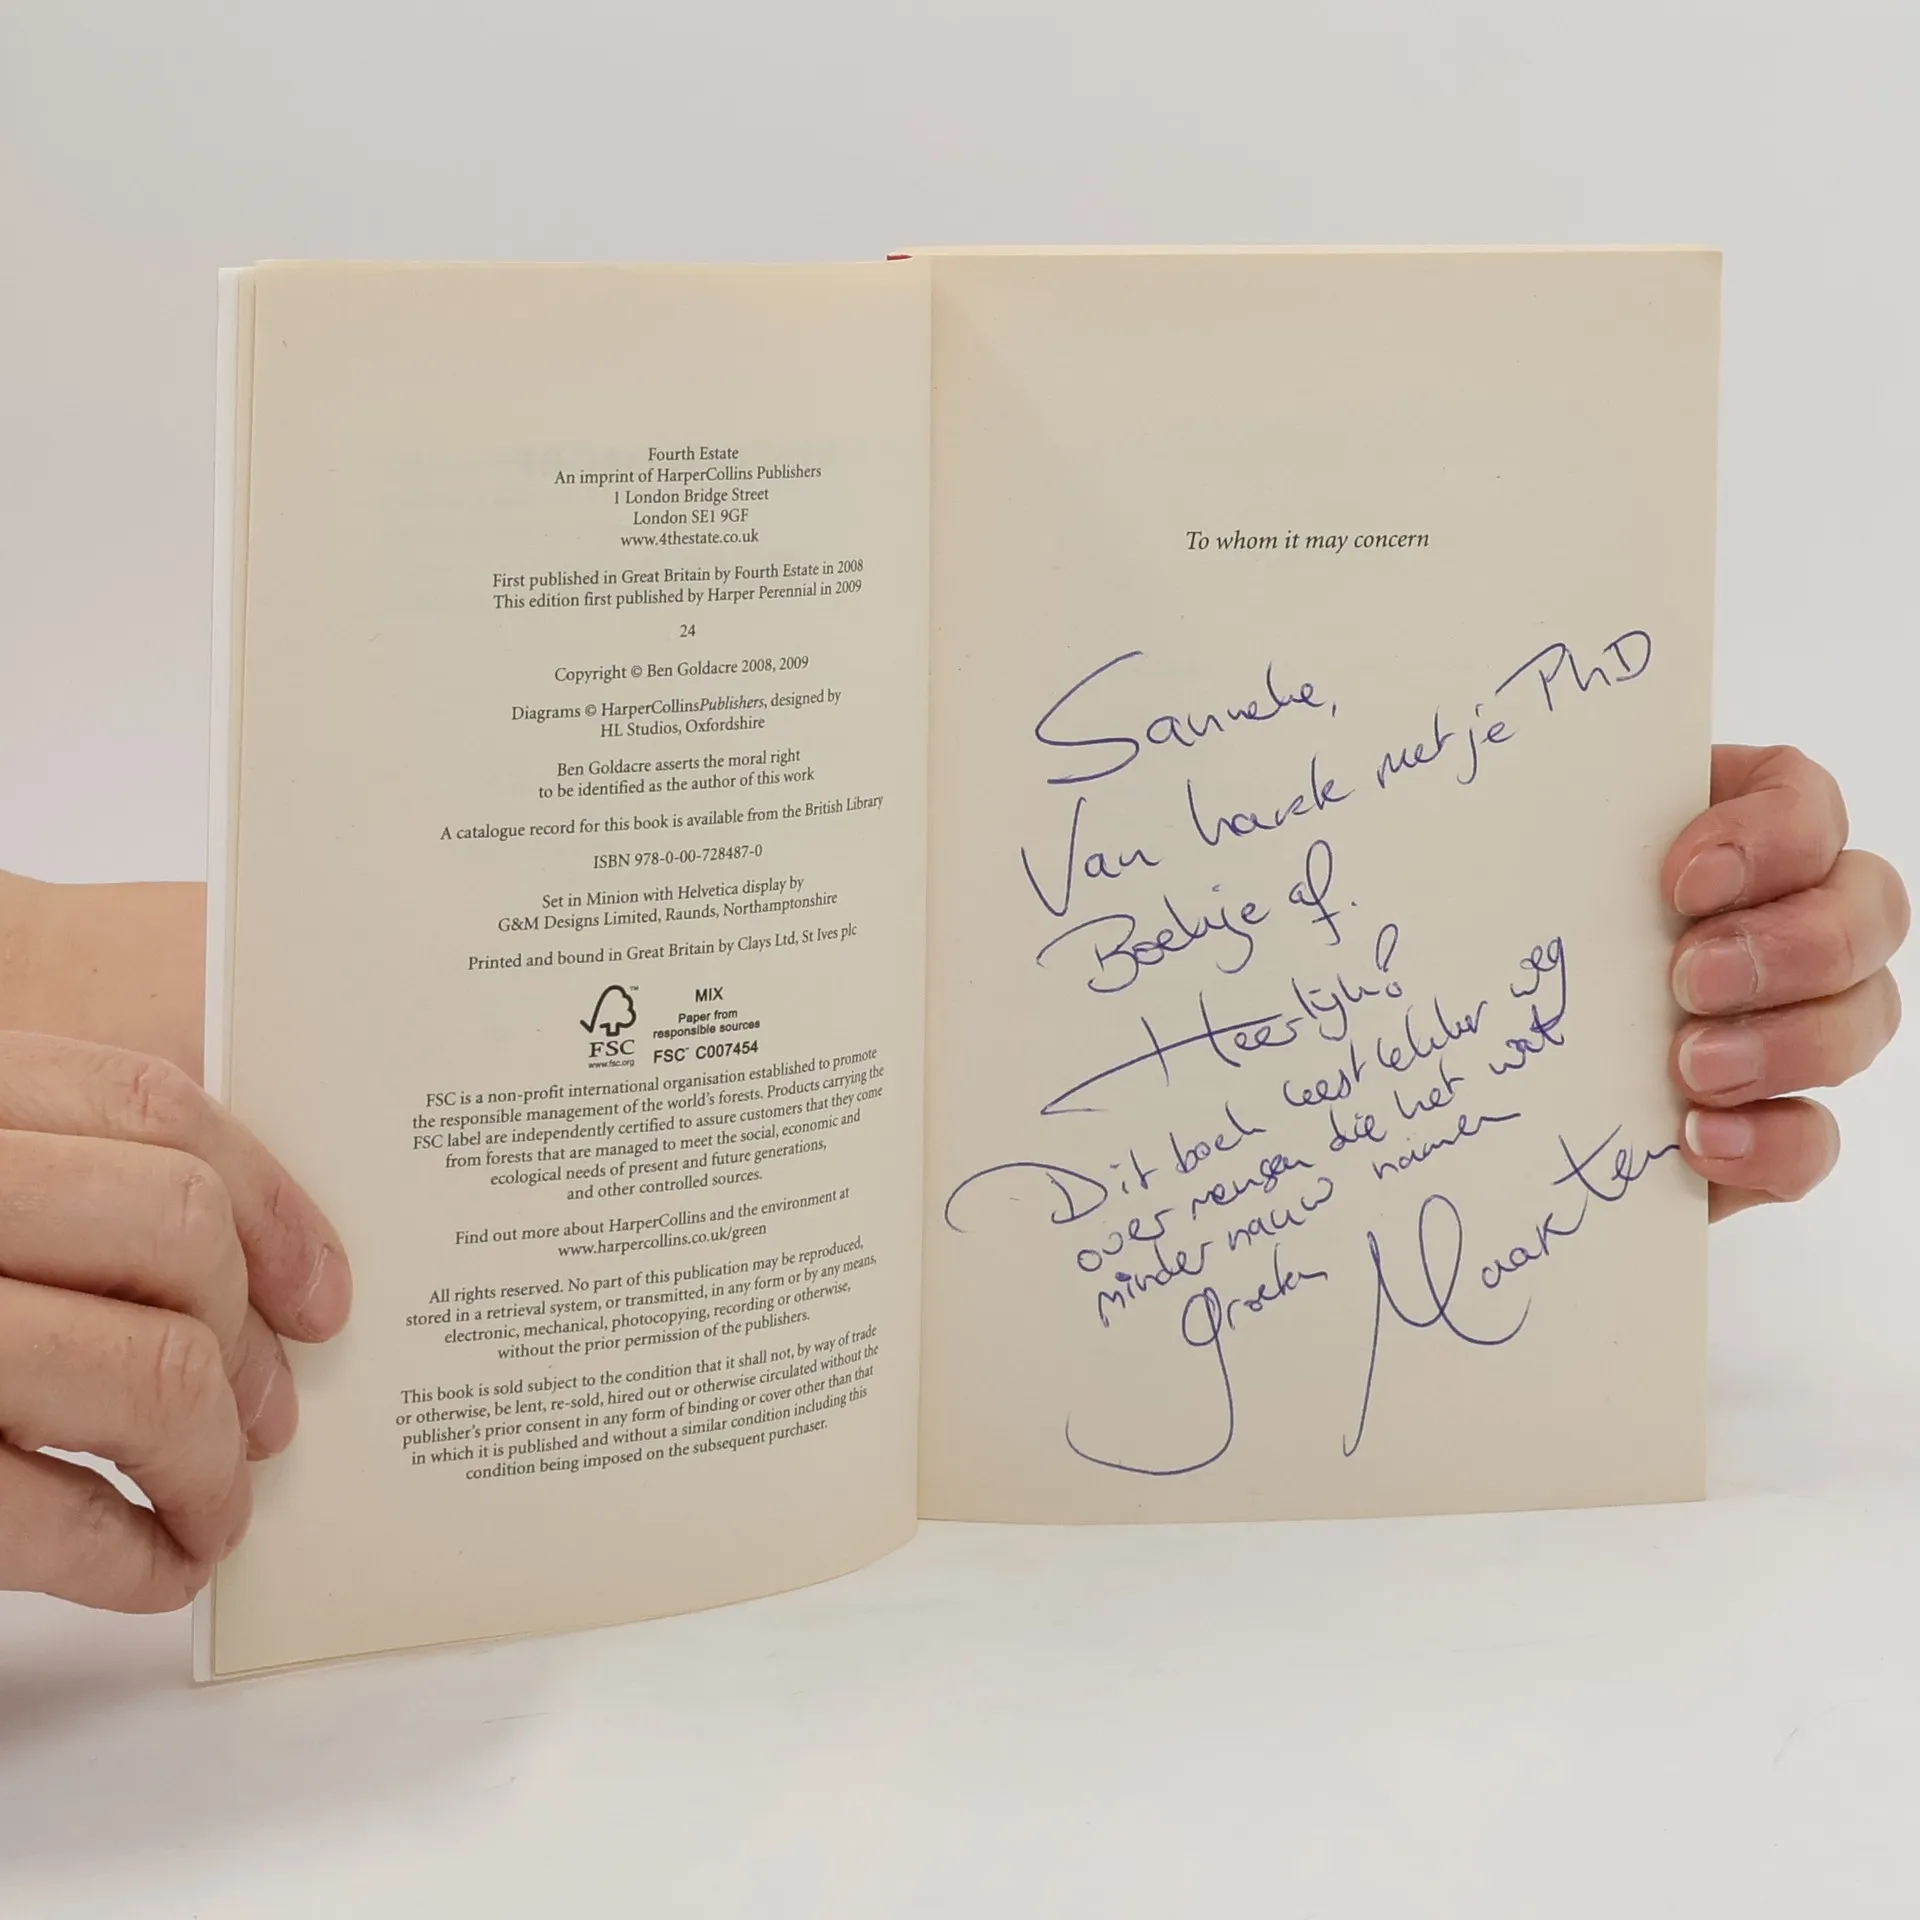 Fourth Estate
An imprint of HarperCollins Publishers
1 London Bridge Street
London SE1 9GF
www.4thestate.co.uk
First published in Great Britain by Fourth Estate in 2008
This edition first published by Harper Perennial in 2009
24
Copyright © Ben Goldacre 2008, 2009
Diagrams © HarperCollinsPublishers, designed by
HL Studios, Oxfordshire
Ben Goldacre asserts the moral right
to be identified as the author of this work
A catalogue record for this book is available from the British Library
ISBN 978-0-00-728487-0
Set in Minion with Helvetica display by
G&M Designs Limited, Raunds, Northamptonshire
Printed and bound in Great Britain by Clays Ltd, St Ives plc
FSC™
www.fsc.org
MIX
Paper from
responsible sources
FSC™ C007454
FSC is a non-profit international organisation established to promote
the responsible management of the world's forests. Products carrying the
FSC label are independently certified to assure customers that they come
from forests that are managed to meet the social, economic and
ecological needs of present and future generations,
and other controlled sources.
Find out more about HarperCollins and the environment at
www.harpercollins.co.uk/green
All rights reserved. No part of this publication may be reproduced,
stored in a retrieval system, or transmitted, in any form or by any means,
electronic, mechanical, photocopying, recording or otherwise,
without the prior permission of the publishers.
This book is sold subject to the condition that it shall not, by way of trade
or otherwise, be lent, re-sold, hired out or otherwise circulated without the
publisher's prior consent in any form of binding or cover other than that
in which it is published and without a similar condition including this
condition being imposed on the subsequent purchaser.
To whom it may concern
Sanneke,
Van harte met je PhD
Boekje af.
Heerlijk!
Dit boek leest lekker weg
over mensen die het wat
minder nauw namen
Groeten Maarten